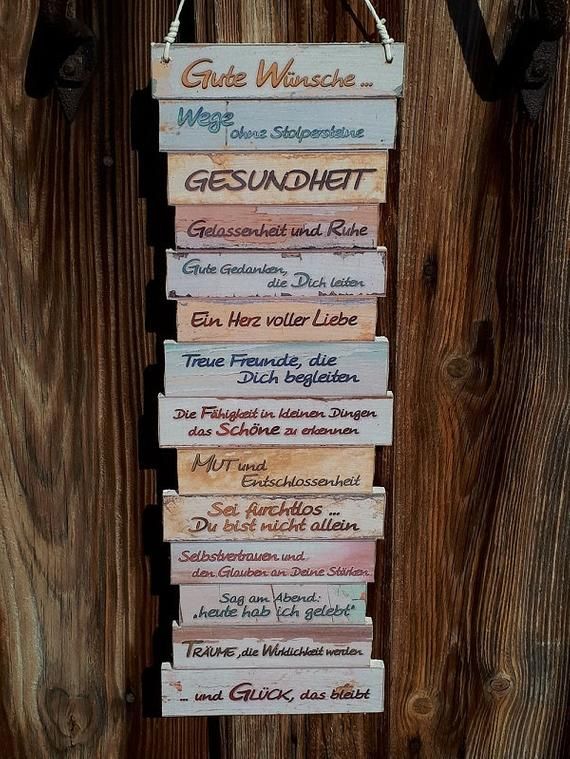 Gute Wünsche ...
Wege
ohne Stolpersteine
GESUNDHEIT
Gelassenheit und Ruhe
Gute Gedanken,
die Dich leiten
Ein Herz voller Liebe
Treue Freunde, die
Dich begleiten
Die Fähigkeit in kleinen Dingen
das Schöne zu erkennen
MUT und
Entschlossenheit
Sei furchtlos ...
Du bist nicht allein
Selbstvertrauen und
den Glauben an Deine Stärken
Sag am Abend:
„heute hab ich gelebt“
TRÄUME, die Wirklichkeit werden
... und GLÜCK, das bleibt